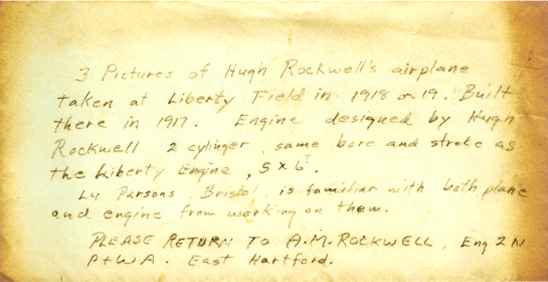 3 Pictures of Hugh Rockwell's airplane
taken at Liberty Field in 1918 or 19. Built
there in 1917. Engine designed by Hugh
Rockwell 2 cylinger, same bore and stroke as
the Liberty Engine, 5 x 6".
Ly Parsons, Bristol, is familiar with both plane
and engine from working on them.
PLEASE RETURN TO A.M. ROCKWELL, Eng 2N
P+WA. East Hartford.